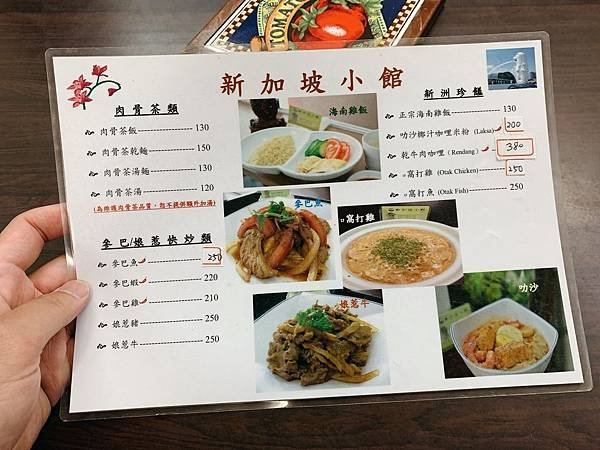 TOMATO
新加坡小館
肉骨茶類
肉骨茶飯 130
肉骨茶乾麵 150
肉骨茶湯麵 130
肉骨茶湯 120
(為維護肉骨茶品質,恕不提供額外加湯)
參巴/娘惹快炒類
參巴魚 250
參巴蝦 220
參巴雞 210
娘惹豬 250
娘惹牛 250
海南雞飯
參巴魚
娘惹牛
窩打雞
叻沙
新洲珍饈
正宗海南雞飯 130
叻沙椰汁咖哩米粉 (Laksa) 200
乾牛肉咖哩 (Rendang) 380
窩打雞 (Otak Chicken) 250
窩打魚 (Otak Fish) 250